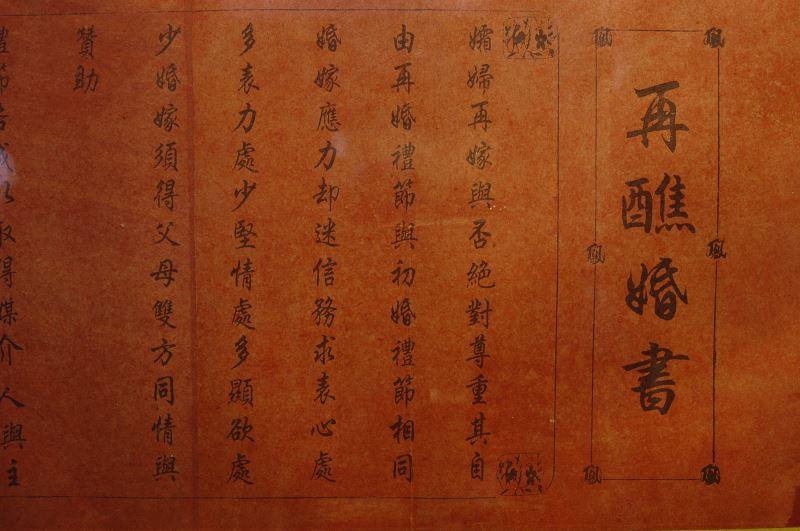 再醮婚書
孀婦再嫁與否絕對尊重其自
由再婚禮節與初婚禮節相同
婚嫁應力却迷信務求表心處
多表力處少堅情處多顯欲處
少婚嫁須得父母雙方同情與
贊助
禮節告成以取得媒介人與主